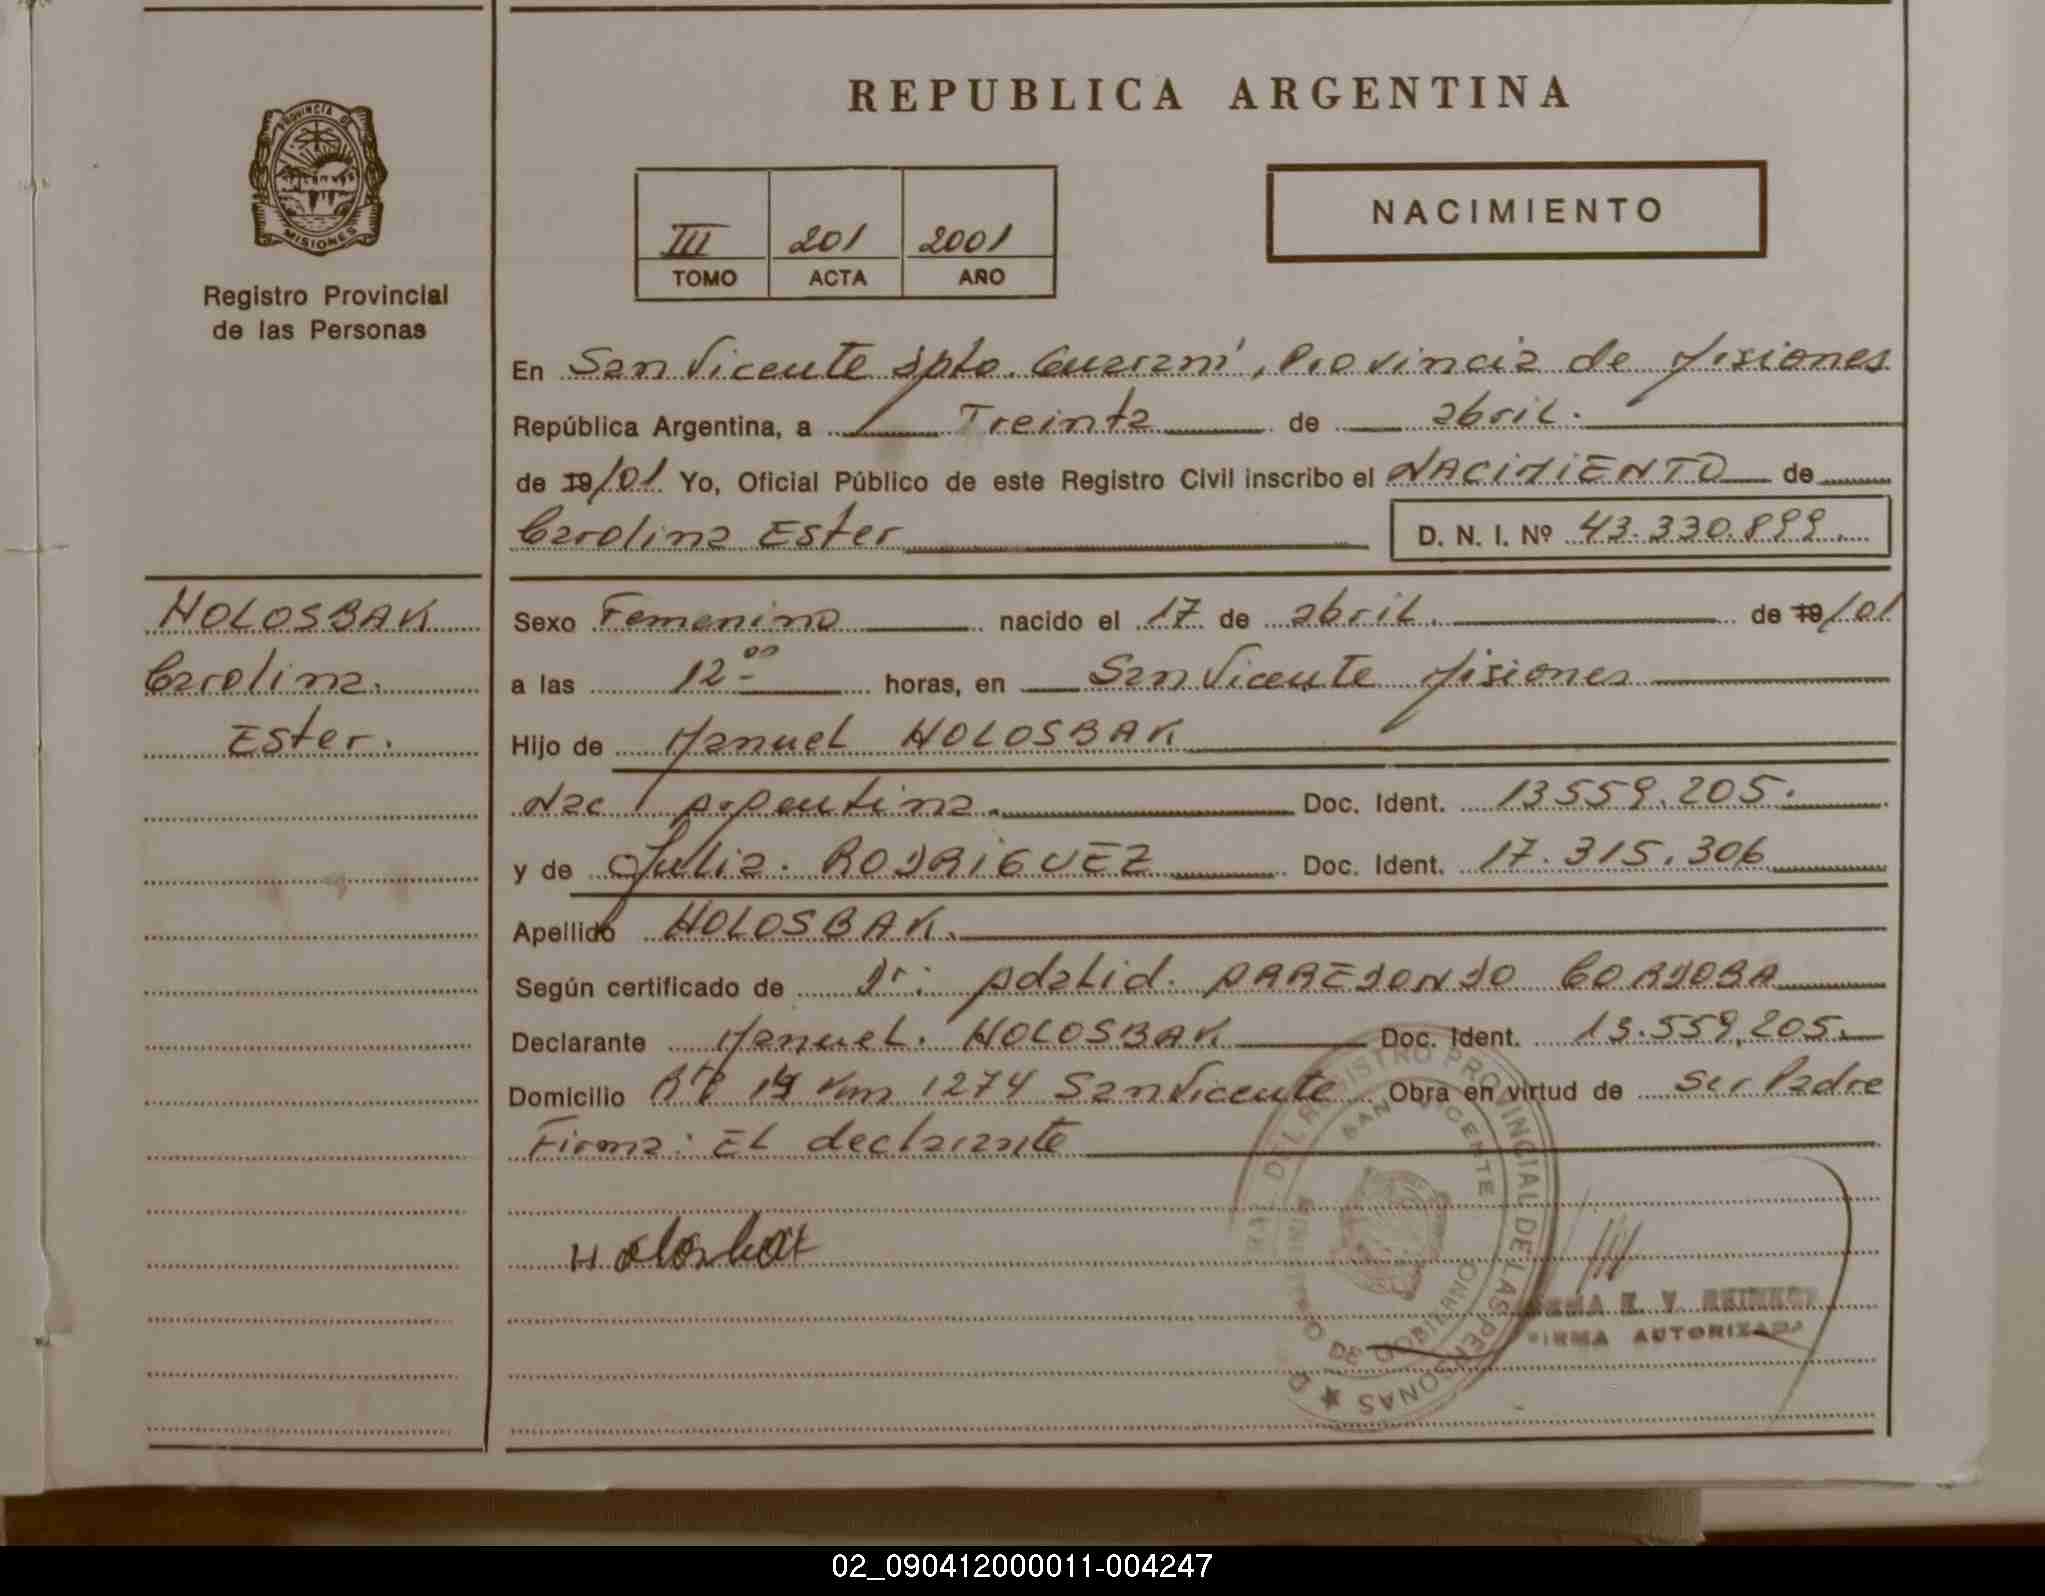 REPUBLICA ARGENTINA
PROVINCIA DE
MISIONES
Registro Provincial
de las Personas
III 201 2001
TOMO ACTA AÑO
NACIMIENTO
En San Vicente Dpto. Guaraní, Provincia de Misiones
República Argentina, a Treinta de abril.
de 19/01 Yo, Oficial Público de este Registro Civil inscribo el NACIMIENTO de
Carolina Ester D. N. I. Nº 43.330.899
HOLOSBAK
Carolina.
Ester.
Sexo Femenino nacido el 17 de abril. de 19/01
a las 12 00 horas, en San Vicente Misiones
Hijo de Manuel HOLOSBAK
Nac Argentina. Doc. Ident. 13559.205.
y de Julia. RODRIGUEZ Doc. Ident. 17.315.306
Apellido HOLOSBAK.
Según certificado de Dr: Adalid. ARREDONDO CORDOBA
Declarante Manuel. HOLOSBAK Doc. Ident. 13.559.205.
Domicilio 14 Km 1274 San Vicente Obra en virtud de Ser Padre
Firma: El declarante
Holosbak
REGISTRO PROVINCIAL DE LAS PERSONAS
SAN VICENTE
DE GOBIERNO
FIRMA AUTORIZADA
02_090412000011-004247